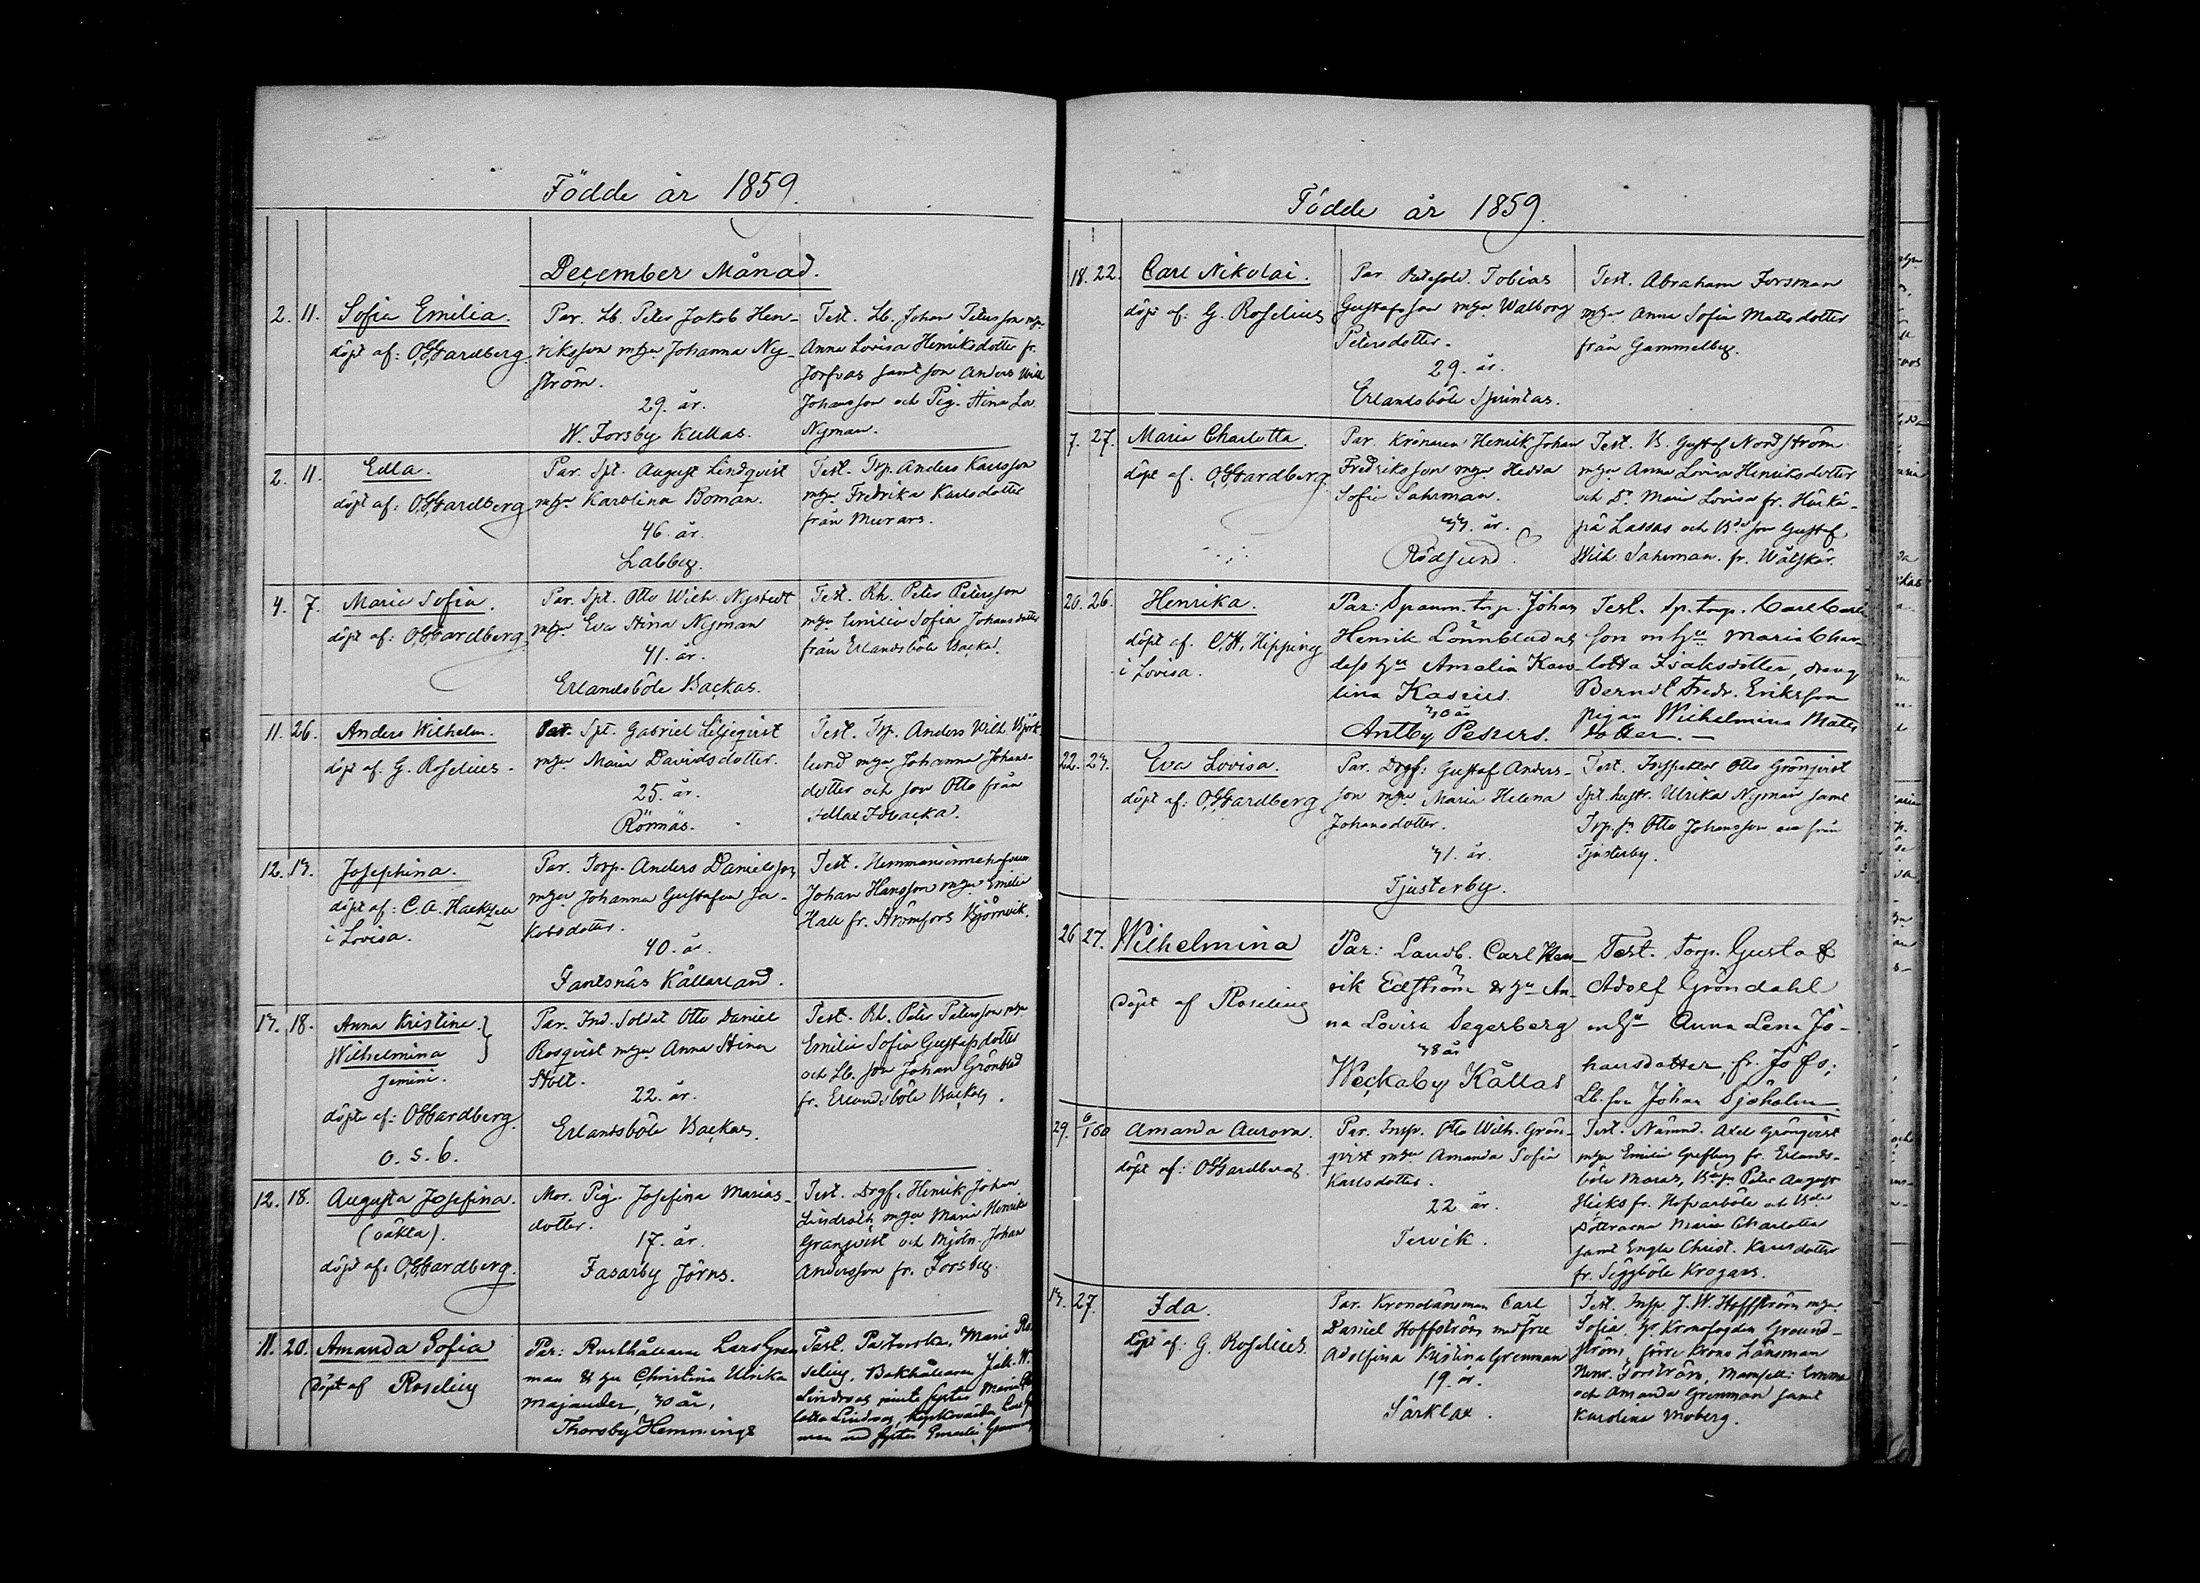 Födde år 1859.
December Månad.
2. 11. Sofia Emilia.
döpt af: O.G. Gardberg.
Par. Lb. Peter Jakob Hen-
riksson m hu Johanna Ny-
ström.
29. år.
W. Forsby Kullas.
Test. Lb. Johan Petersson m hu
Anna Lovisa Henriksdotter fr.
Jorfvas samt son Anders Wilh
Johansson och Pig. Stina Lov
Nyman.
2. 11. Edla.
döpt af: O.G. Gardberg
Par. Spt. August Lindqvist
m hu Karolina Boman.
46. år.
Labby.
Test. Trp. Anders Karlsson
m hu Fredrika Karlsdotter
från Murars.
4. 7. Maria Sofia.
döpt af: O.G. Gardberg.
Par. Spt. Otto Wilh. Nystedt
m hu Eva Stina Nyman
41. år.
Erlandsböle Backas.
Test. Rh. Peter Petersson
m hu Emilia Sofia Johansdotter
från Erlandsböle Backas.
11. 26. Anders Wilhelm.
döpt af. G. Roselius.
Par. Spt. Gabriel Liljeqvist
m hu Maria Davidsdotter.
25. år.
Rönnäs.
Test. Trp. Anders Wilh. Björk-
lund m hu Johanna Johans-
dotter och son Otto från
12. 17. Josephina.
döpt af: C.A.
i Lovisa.
Par. Torp. Anders Danielsson
m hu Johanna Gustafva Ja-
kobsdotter.
40. år
Fantsnäs Källarland.
Test. Hemmansinnehafvaren
Johan Hansson m hu Emilia
Hall fr. Strömfors Björnvik.
17. 18. Anna Kristina }
Wilhelmina
gemini.
döpte af: O.G. Gardberg.
o. s. b.
Par. Ind. Soldat Otto Daniel
Rosqvist m hu Anna Stina
Stolt.
22. år.
Erlandsböle Backas.
Test. Rh. Peter Petersson m hu
Emilia Sofia Gustafsdotter
och Lb. son Johan Grönblad
fr. Erlandsböle Backas.
12. 18. Augusta Josefina.
(oäkta).
döpt af: O.G. Gardberg.
Mor. Pig. Josefina Marias-
dotter.
17. år.
Fasarby Jörns.
Test. Drgf. Henrik Johan
Lindroth m hu Maria Henrika
Granqvist och Mjöln. Johan
Andersson fr. Forsby.
11. 20. Amanda Sofia
Döpt af Roselius
Par: Rusthållaren Lars Gren
man & hu Christina Ulrika
Majander, 40 år,
Thorsby Hemmings
Test. Pastorska, Maria Ro
selius, Bokhållaren Jak. W.
Födde år 1859.
18. 22. Carl Nikolai.
döpt af: G. Roselius
Par Tobias
Gustafsson m hu Walborg
Petersdotter.
29. år.
Erlandsböle
Test. Abraham Forsman
m hu Anna Sofia Mattsdotter
från Gammelby.
7. 27. Maria Charlotta.
döpt af. O.G. Gardberg.
Par. Krönaren Henrik Johan
Fredriksson m hu Hedda
Sofia Sahrman.
44. år.
Rödsund.
Test. B. Gustaf Nordström
m hu Anna Lovisa Henriksdotter
och Dr Maria Lovisa fr. Härkä-
pä Lassas och Bde son Gustaf
Wilh. Sahrman. fr. Wåtskär.
20. 26. Henrika.
döpt af. C.H. Hipping
i Lovisa.
Par: Spanm. torp. Johan
Henrik Lönnblad och
dess hu Amalia Karo-
lina Kaseus.
40 år
Antby Pesurs.
Test. Sp. torp. Carl Carls-
son m hu Maria Char-
lotta Isaksdotter, dräng
Berndt Fredr. Eriksson
pigan Wilhelmina Matts
dotter.
22. 27. Eva Lovisa.
döpt af: O.G. Gardberg
Par. Drgf: Gustaf Anders-
son m hu Maria Helena
Johansdotter.
41. år.
Tjusterby.
Test. Inspektor Otto Grönqvist
Spt. hustr. Ulrika Nyman samt
Trp. sn Otto Johansson alla från
Tjusterby.
26 27. Wilhelmina
döpt af Roselius
Par: Landb. Carl Hen-
rik Edström & hu An-
na Lovisa Segerberg
48 år
Weckaby Kållas
Test. Torp. Gustaf
Adolf Gröndahl
m hu Anna Lena Jo-
hansdotter, fr. Jofs;
Lb. son Johan Sjöholm
29. 6/1 60 Amanda Aurora.
döpt af: O.G. Gardberg.
Par. Insp. Otto Wilh. Grön-
qvist m hu Amanda Sofia
Karlsdotter.
22 år.
Tervik.
Test. Nämnd. Axel Grönqvist
m hu Emilia Grefberg fr. Erlands-
böle Moras, Bde sn Peter August
Hicks fr. Hofvarböle och Bde
döttrarna Maria Charlotta
samt Engla Christ. Karlsdotter
fr. Siggböle Krogars.
17. 27. Ida.
döpt af: G. Roselius.
Par. Kronolänsman Carl
Daniel Hoffström med Fru
Adolfina Kristina Grenman
19. år.
Särklax.
Test. Insp. J.W. Hoffström m hu
Sofia, Hr Kronofogden Grund-
ström, förre Krono Länsman
Henr. Forström, Mamsell: Emma
och Amanda Grenman samt
Karolina Moberg.